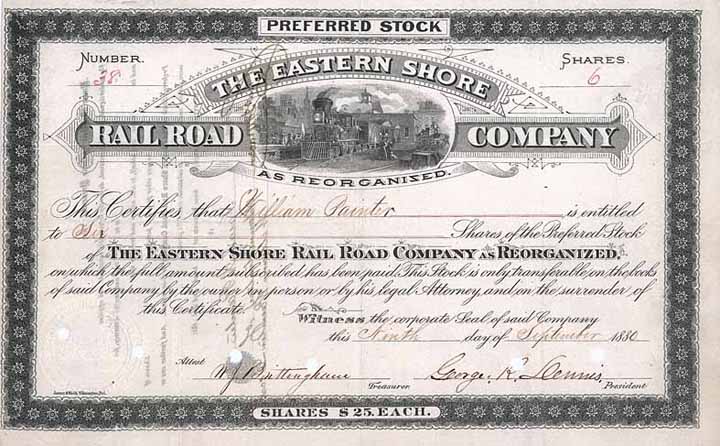 PREFERRED STOCK
NUMBER.
38.
SHARES.
6
THE EASTERN SHORE
RAIL ROAD COMPANY
AS REORGANIZED.
This Certifies that William Painter is entitled
to Six Shares of the Preferred Stock
of THE EASTERN SHORE RAIL ROAD COMPANY AS REORGANIZED,
on which the full amount subscribed has been paid. This Stock is only transferable on the books
of said Company by the owner in person or by his legal Attorney, and on the surrender of
this Certificate.
Witness the corporate Seal of said Company
this Ninth day of September 1880
Attest
W. J. Brittingham
Treasurer.
George R. Dennis,
President
SHARES $25. EACH.